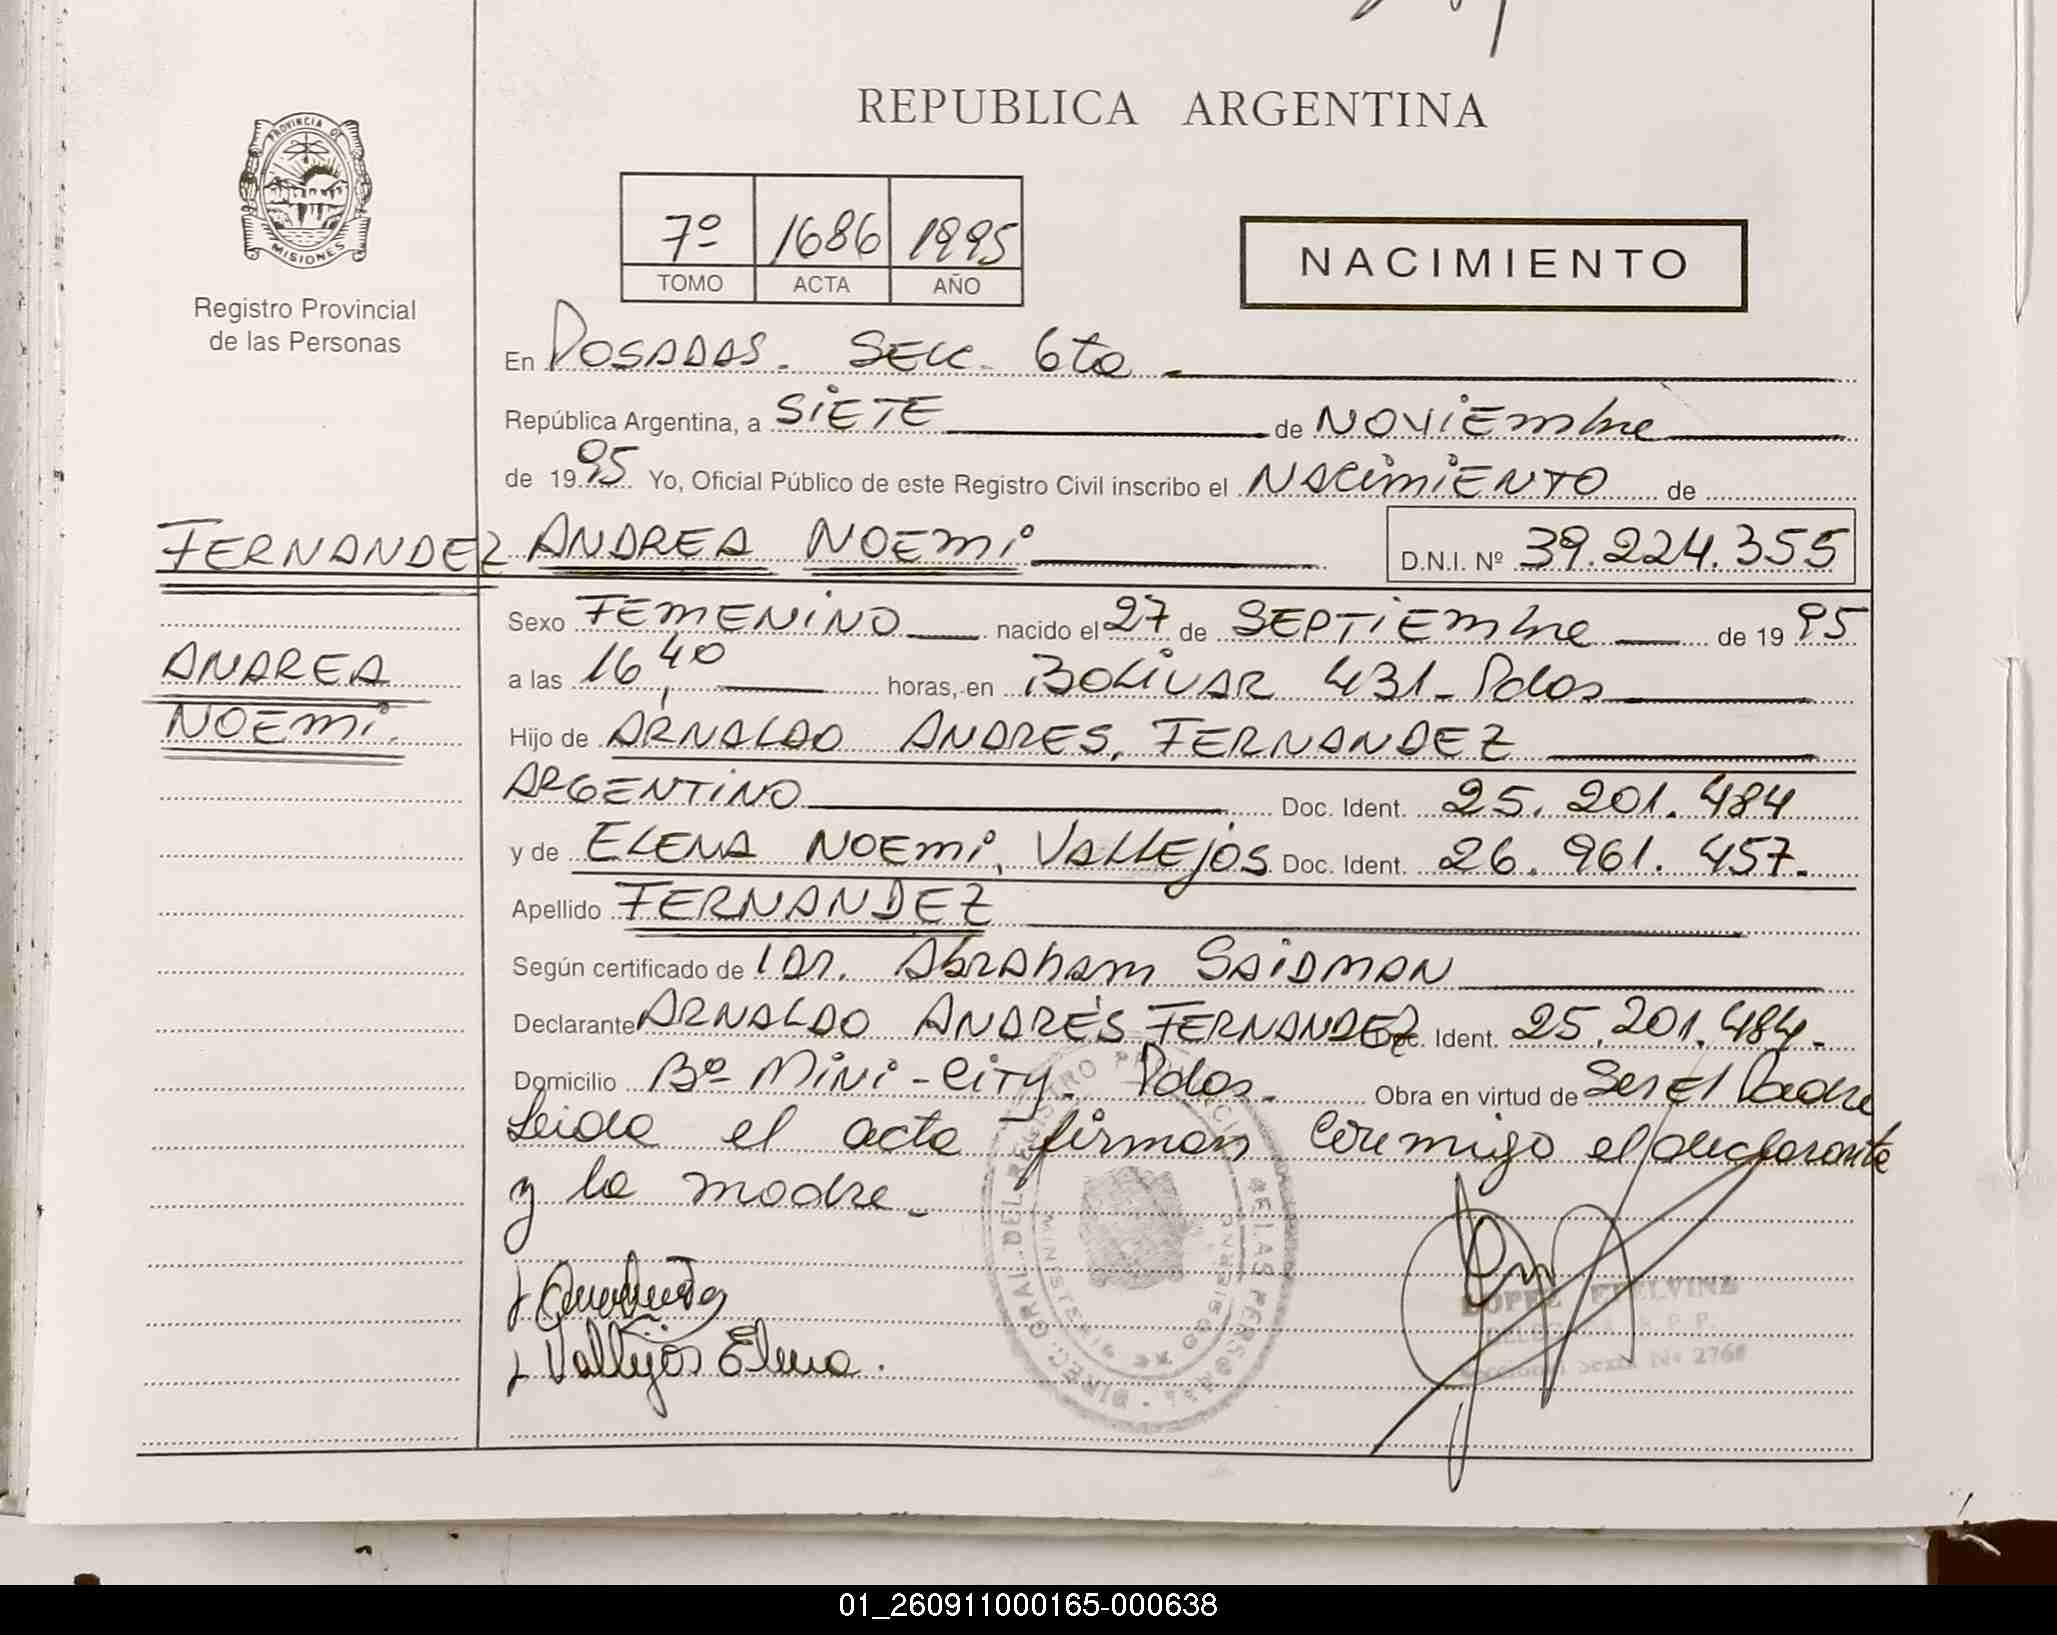 REPUBLICA ARGENTINA
PROVINCIA DE
MISIONES
Registro Provincial
de las Personas
7º 1686 1995
TOMO ACTA AÑO
NACIMIENTO
En POSADAS. SECC. 6ta
República Argentina, a SIETE de NOVIEmbre
de 1995 Yo, Oficial Público de este Registro Civil inscribo el NACIMIENTO de
FERNANDEZ ANDREA NOEMI D.N.I. Nº 39.224.355
ANDREA
NOEMI.
Sexo FEMENINO nacido el 27 de SEPTIEmbre de 1995
a las 16,40 horas, en BOLIVAR 431- Pdas
Hijo de ARNALDO ANDRES, FERNANDEZ
ARGENTINO Doc. Ident. 25.201.484
y de ELENA NOEMI, VALLEJOS Doc. Ident. 26.961.457.
Apellido FERNANDEZ
Según certificado de Dr. AbRAham SAIDMAN
Declarante ARNALDO ANDRÉS FERNANDEZ Doc. Ident. 25.201.484.
Domicilio Bº MINI-CITY- Pdas. Obra en virtud de Ser El Padre
Leida el acta firman conmigo el declarante
y la madre.
Vallejos Elena.
DIREC. GRAL. DEL REGISTRO DE LAS PERSONAS
LOPEZ ETELVINA
Sexta Nº 2766
01_260911000165-000638